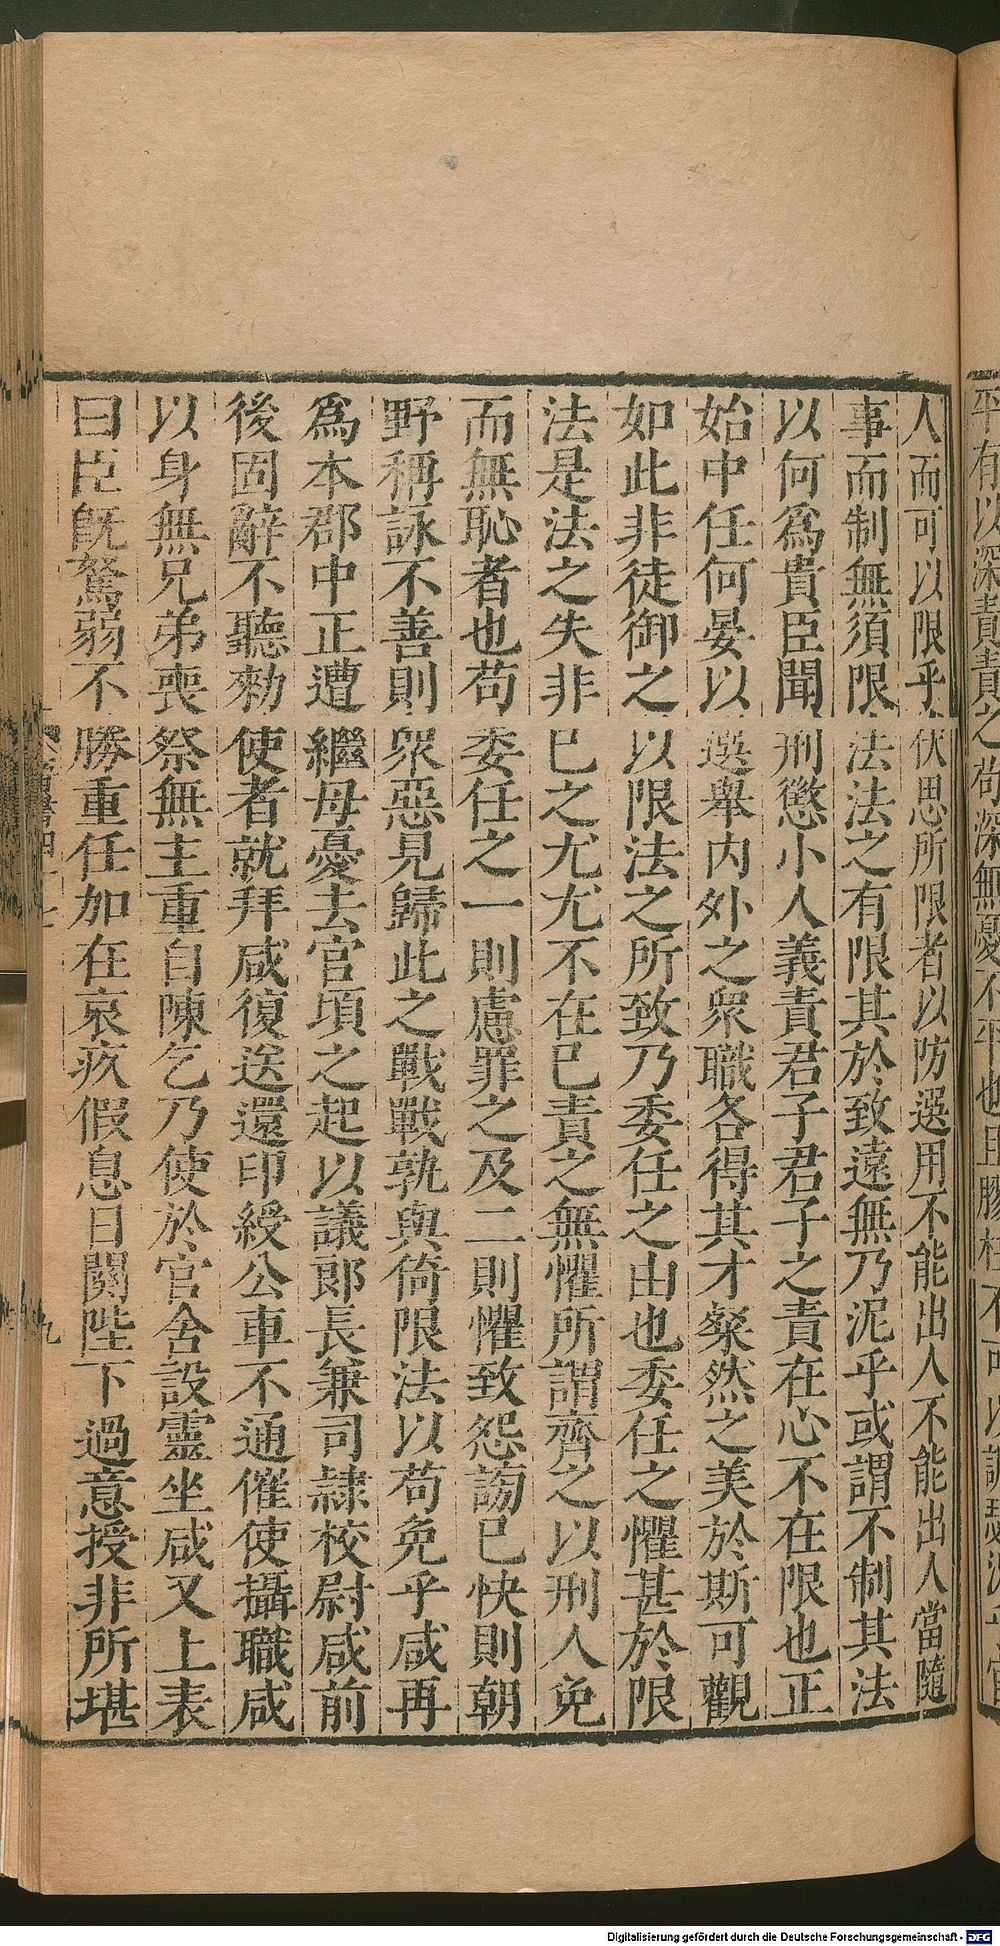 人而可以限乎伏思所限者以防選用不能出人不能出人當隨
事而制無須限法法之有限其於致遠無乃泥乎或謂不制其法
以何爲貴臣聞刑懲小人義責君子君子之責在心不在限也正
始中任何晏以選舉内外之衆職各得其才粲然之美於斯可觀
如此非徒御之以限法之所致乃委任之由也委任之懼甚於限
法是法之失非已之尤尤不在已責之無懼所謂齊之以刑人免
而無恥者也苟委任之一則慮罪之及二則懼致怨謗已快則朝
野稱詠不善則衆惡見歸此之戰戰孰與倚限法以苟免乎咸再
爲本郡中正遭繼母憂去官頃之起以議郎長兼司隸校尉咸前
後固辭不聽勑使者就拜咸復送還印綬公車不通催使攝職咸
以身無兄弟喪祭無主重自陳乞乃使於官舍設靈坐咸又上表
曰臣旣駑弱不勝重任加在哀疚假息日闋陛下過意授非所堪
九
Digitalisierung gefördert durch die Deutsche Forschungsgemeinschaft - DFG